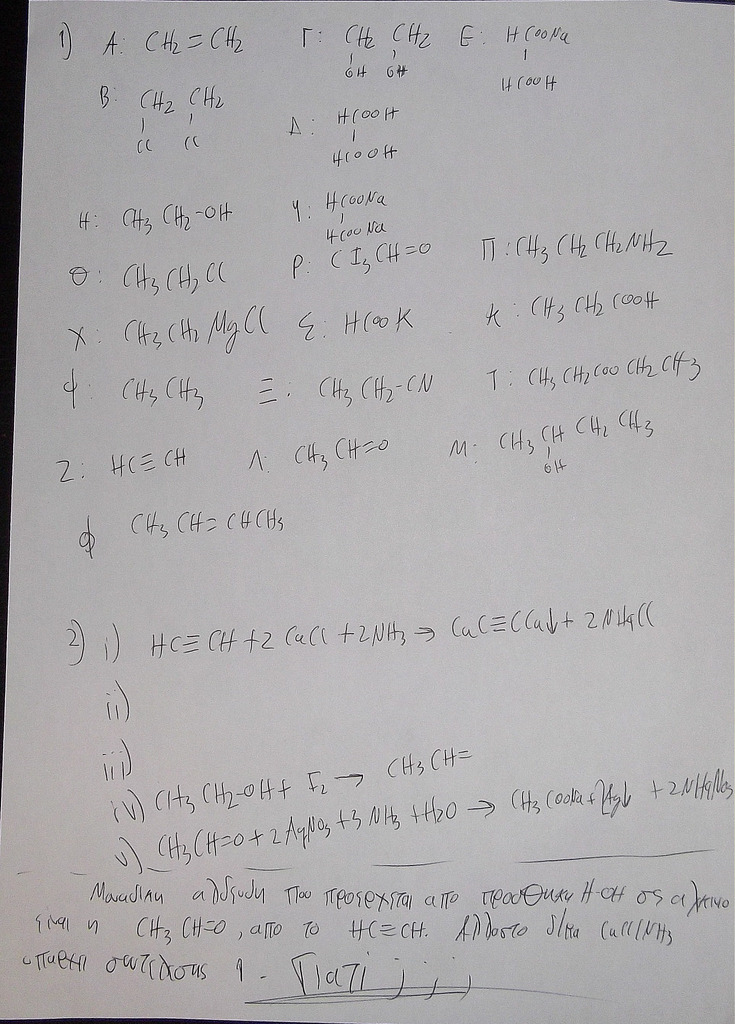 1) A: CH2=CH2 Γ: CH2 CH2 E: HCOONa
OH OH HCOOH
B: CH2 CH2 Δ: HCOOH
Cl Cl HCOOH
H: CH3 CH2-OH Y: HCOONa
HCOONa
Θ: CH3CH2Cl P: CI3CH=O Π: CH3 CH2 CH2NH2
X: CH3CH2MgCl Σ: HCOOK K: CH3 CH2 COOH
Ψ: CH3 CH3 Ξ: CH3 CH2-CN T: CH3 CH2COO CH2 CH3
Z: HC≡CH Λ: CH3 CH=O M: CH3 CH CH2 CH3
OH
Φ CH3 CH=CHCH3
2) i) HC≡CH + 2 CuCl + 2NH3 → CuC≡CCu↓ + 2NH4Cl
ii)
iii)
iv) CH3 CH2-OH + I2 → CH3 CH=
v) CH3CH=O + 2AgNO3 + 3NH3 + H2O → + 2NH4NO3
Μοναδικη αλδευδη που προερχεται απο προσθηκη H-OH σε αλκινιο
ειναι η CH3 CH=O, απο το HC≡CH. Αλλωστε CuCl/NH3
1. Γιατί ; ; ;